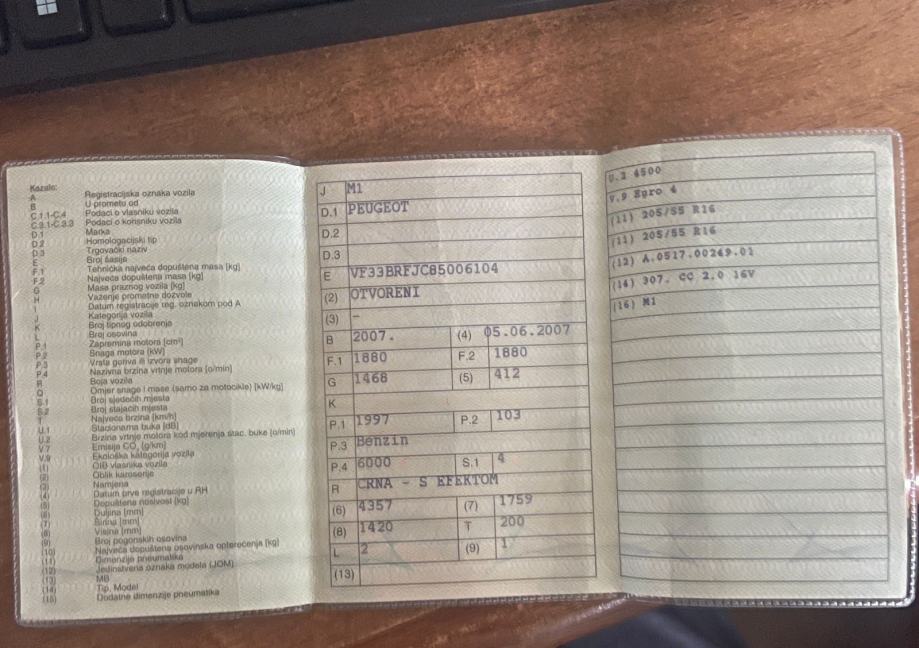 Kazalo:
A Registracijska oznaka vozila
B U prometu od
C.1.1-C.4 Podaci o vlasniku vozila
C.3.1-C.3.3 Podaci o korisniku vozila
D.1 Marka
D.2 Homologacijski tip
D.3 Trgovački naziv
E Broj šasije
F.1 Tehnička najveća dopuštena masa [kg]
F.2 Najveća dopuštena masa [kg]
G Masa praznog vozila [kg]
H Važenje prometne dozvole
I Datum registracije reg. oznakom pod A
J Kategorija vozila
K Broj tipnog odobrenja
L Broj osovina
P.1 Zapremina motora [cm³]
P.2 Snaga motora [kW]
P.3 Vrsta goriva ili izvora snage
P.4 Nazivna brzina vrtnje motora [o/min]
R Boja vozila
Q Omjer snage i mase (samo za motocikle) [kW/kg]
S.1 Broj sjedećih mjesta
S.2 Broj stajaćih mjesta
T Najveća brzina [km/h]
U.1 Stacionarna buka [dB]
U.2 Brzina vrtnje motora kod mjerenja stac. buke [o/min]
V.7 Emisija CO₂ [g/km]
V.9 Ekološka kategorija vozila
(1) OIB vlasnika vozila
(2) Oblik karoserije
(3) Namjena
(4) Datum prve registracije u RH
(5) Dopuštena nosivost [kg]
(6) Duljina [mm]
(7) Širina [mm]
(8) Visina [mm]
(9) Broj pogonskih osovina
(10) Najveća dopuštena osovinska opterećenja [kg]
(11) Dimenzije pneumatika
(12) Jedinstvena oznaka modela (JOM)
(13) MB
(14) Tip, Model
(15) Dodatne dimenzije pneumatika
J M1
D.1 PEUGEOT
D.2
D.3
E VF33BRFJC85006104
(2) OTVORENI
(3) –
B 2007. (4) 05.06.2007
F.1 1880 F.2 1880
G 1468 (5) 412
K
P.1 1997 P.2 103
P.3 Benzin
P.4 6000 S.1 4
R CRNA - S EFEKTOM
(6) 4357 (7) 1759
(8) 1420 T 200
L 2 (9) 1
(13)
U.2 4500
V.9 Euro 4
(11) 205/55 R16
(11) 205/55 R16
(12) A.0517.00249.01
(14) 307. CC 2.0 16V
(16) M1